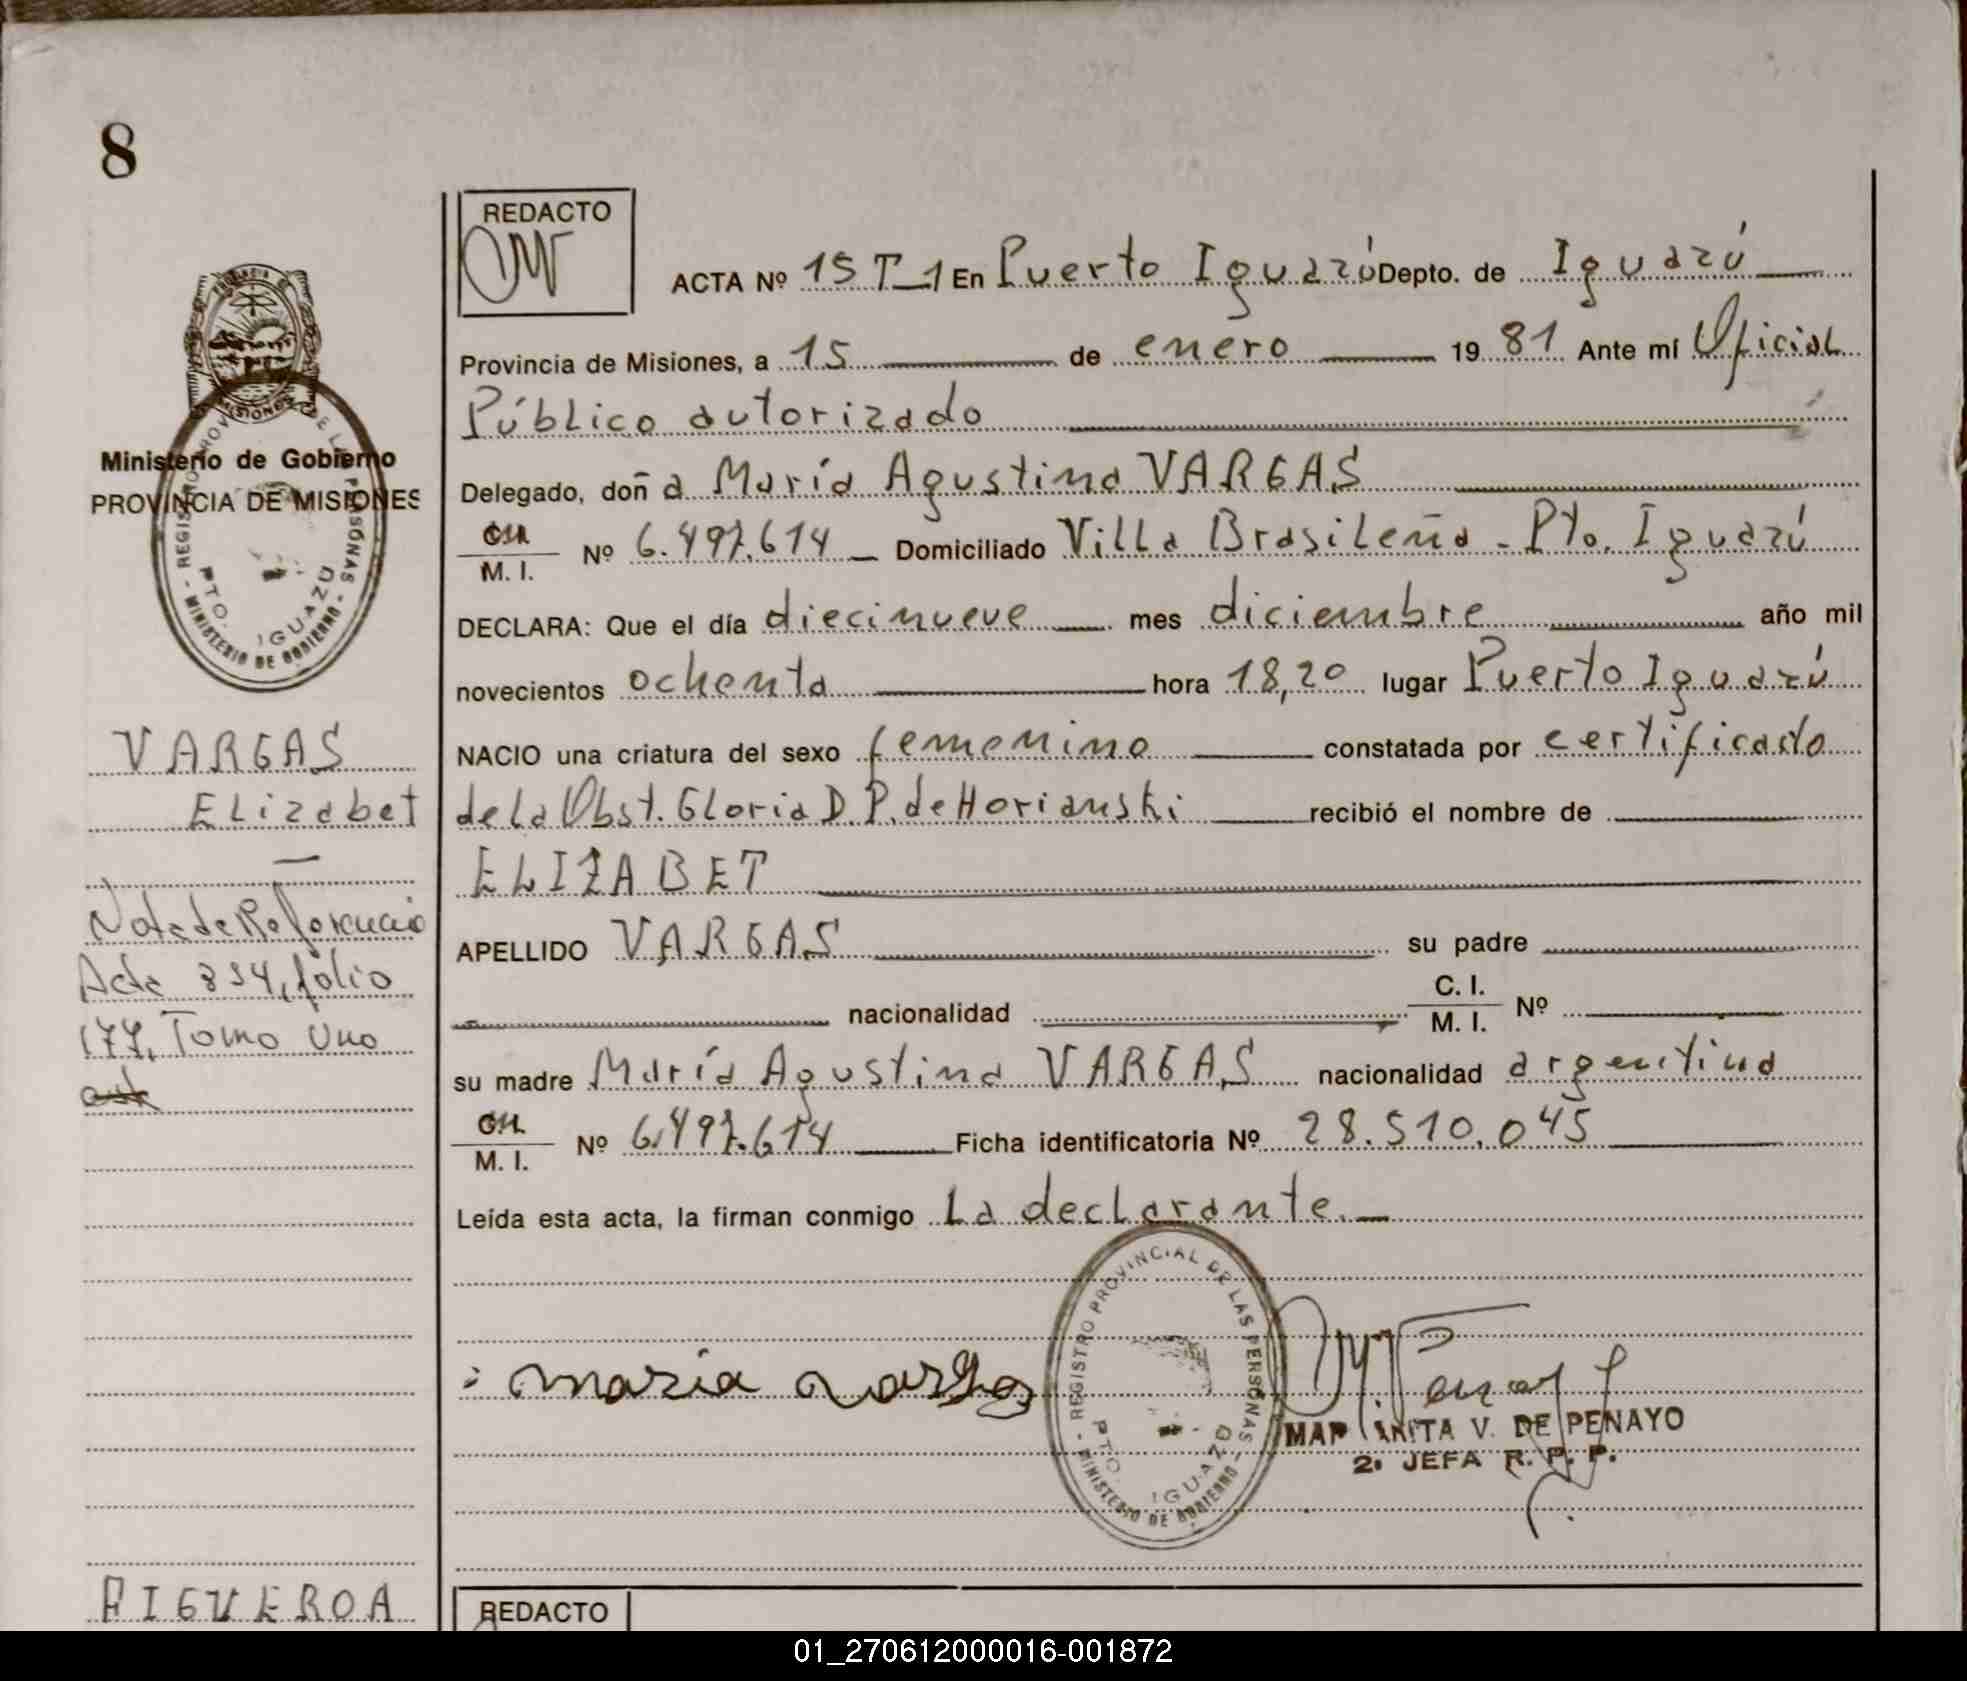 8
REDACTO
ACTA Nº 15 T_1 En Puerto Iguazú Depto. de Iguazú
Provincia de Misiones, a 15 de enero 19 81 Ante mí Oficial
Público autorizado
Ministerio de Gobierno
PROVINCIA DE MISIONES
Delegado, doña María Agustina VARGAS
M. I. Nº 6.497.614 Domiciliado Villa Brasileña - Pto. Iguazú
DECLARA: Que el día diecinueve mes diciembre año mil
novecientos ochenta hora 18,20 lugar Puerto Iguazú
NACIO una criatura del sexo femenino constatada por certificado
de la Obst. Gloria D. P. de Horianski recibió el nombre de
ELIZABET
APELLIDO VARGAS su padre
nacionalidad C. I. M. I. Nº
su madre María Agustina VARGAS nacionalidad argentina
M. I. Nº 6.497.614 Ficha identificatoria Nº 28.510.045
Leída esta acta, la firman conmigo La declarante.
VARGAS
Elizabet
Nota de Referencia
Acta 894, folio
177, Tomo Uno
REGISTRO PROVINCIAL DE LAS PERSONAS
MINISTERIO DE GOBIERNO
PTO. IGUAZU
maria vargas
V. DE PENAYO
2ª JEFA R. P. P.
FIGUEROA
REDACTO
01_270612000016-001872